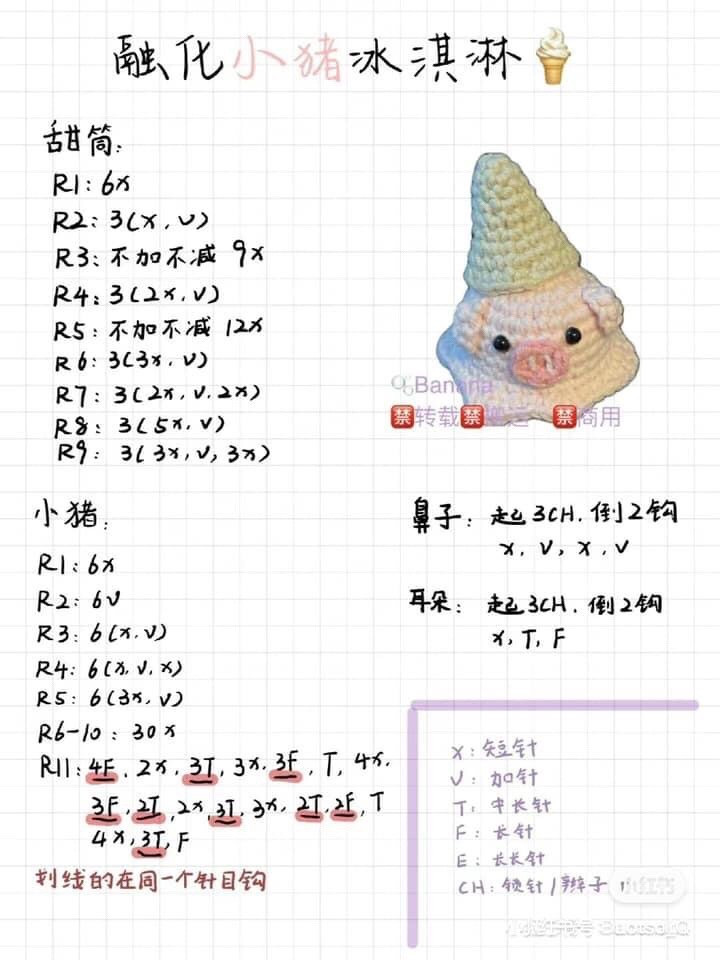 融化小猪冰淇淋
甜筒：
R1：6x
R2：3(x，v)
R3：不加不减 9x
R4：3(2x，v)
R5：不加不减 12x
R6：3(3x，v)
R7：3(2x，v，2x)
R8：3(5x，v)
R9：3(3x，v，3x)
Banana
禁转载禁搬运 禁商用
小猪：
R1：6x
R2：6v
R3：6(x，v)
R4：6(x，v，x)
R5：6(3x，v)
R6-10：30x
R11：4F，2x，3T，3x，3F，T，4x，
3F，2T，2x，3T，3x，2T，2F，T
4x，3T，F
划线的在同一个针目钩
鼻子：起3CH，倒2钩
x，v，x，v
耳朵：起3CH，倒2钩
x，T，F
X：短针
V：加针
T：中长针
F：长针
E：长长针
CH：锁针/辫子
小红书
小红书号